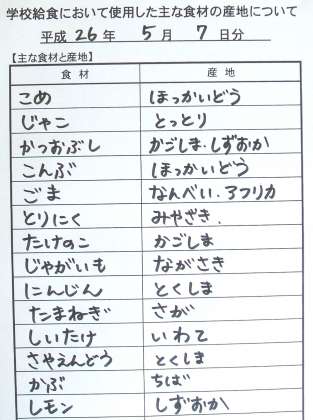 学校給食において使用した主な食材の産地について
平成 26 年 5 月 7 日分
【主な食材と産地】
食材 産地
こめ ほっかいどう
じゃこ とっとり
かつおぶし かごしま・しずおか
こんぶ ほっかいどう
ごま なんべい・アフリカ
とりにく みやざき.
たけのこ かごしま
じゃがいも ながさき
にんじん とくしま
たまねぎ さが
しいたけ いわて
さやえんどう とくしま
かぶ ちば
レモン しずおか